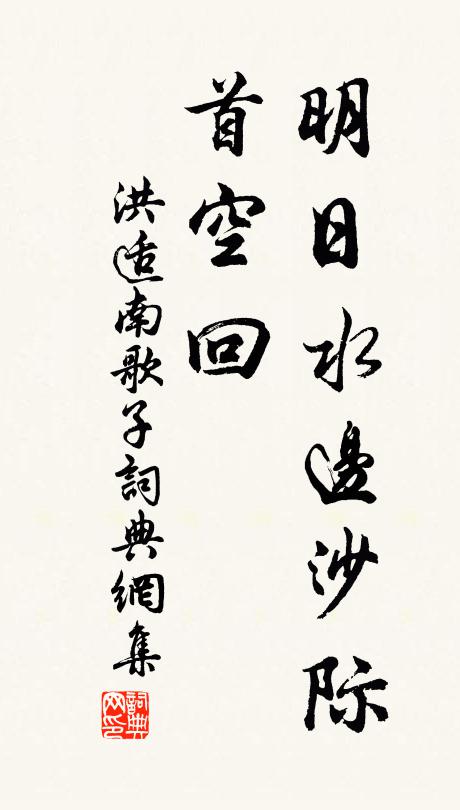 明日水邊沙際
首空回
洪适南歌子詞典網集
詞典
网印